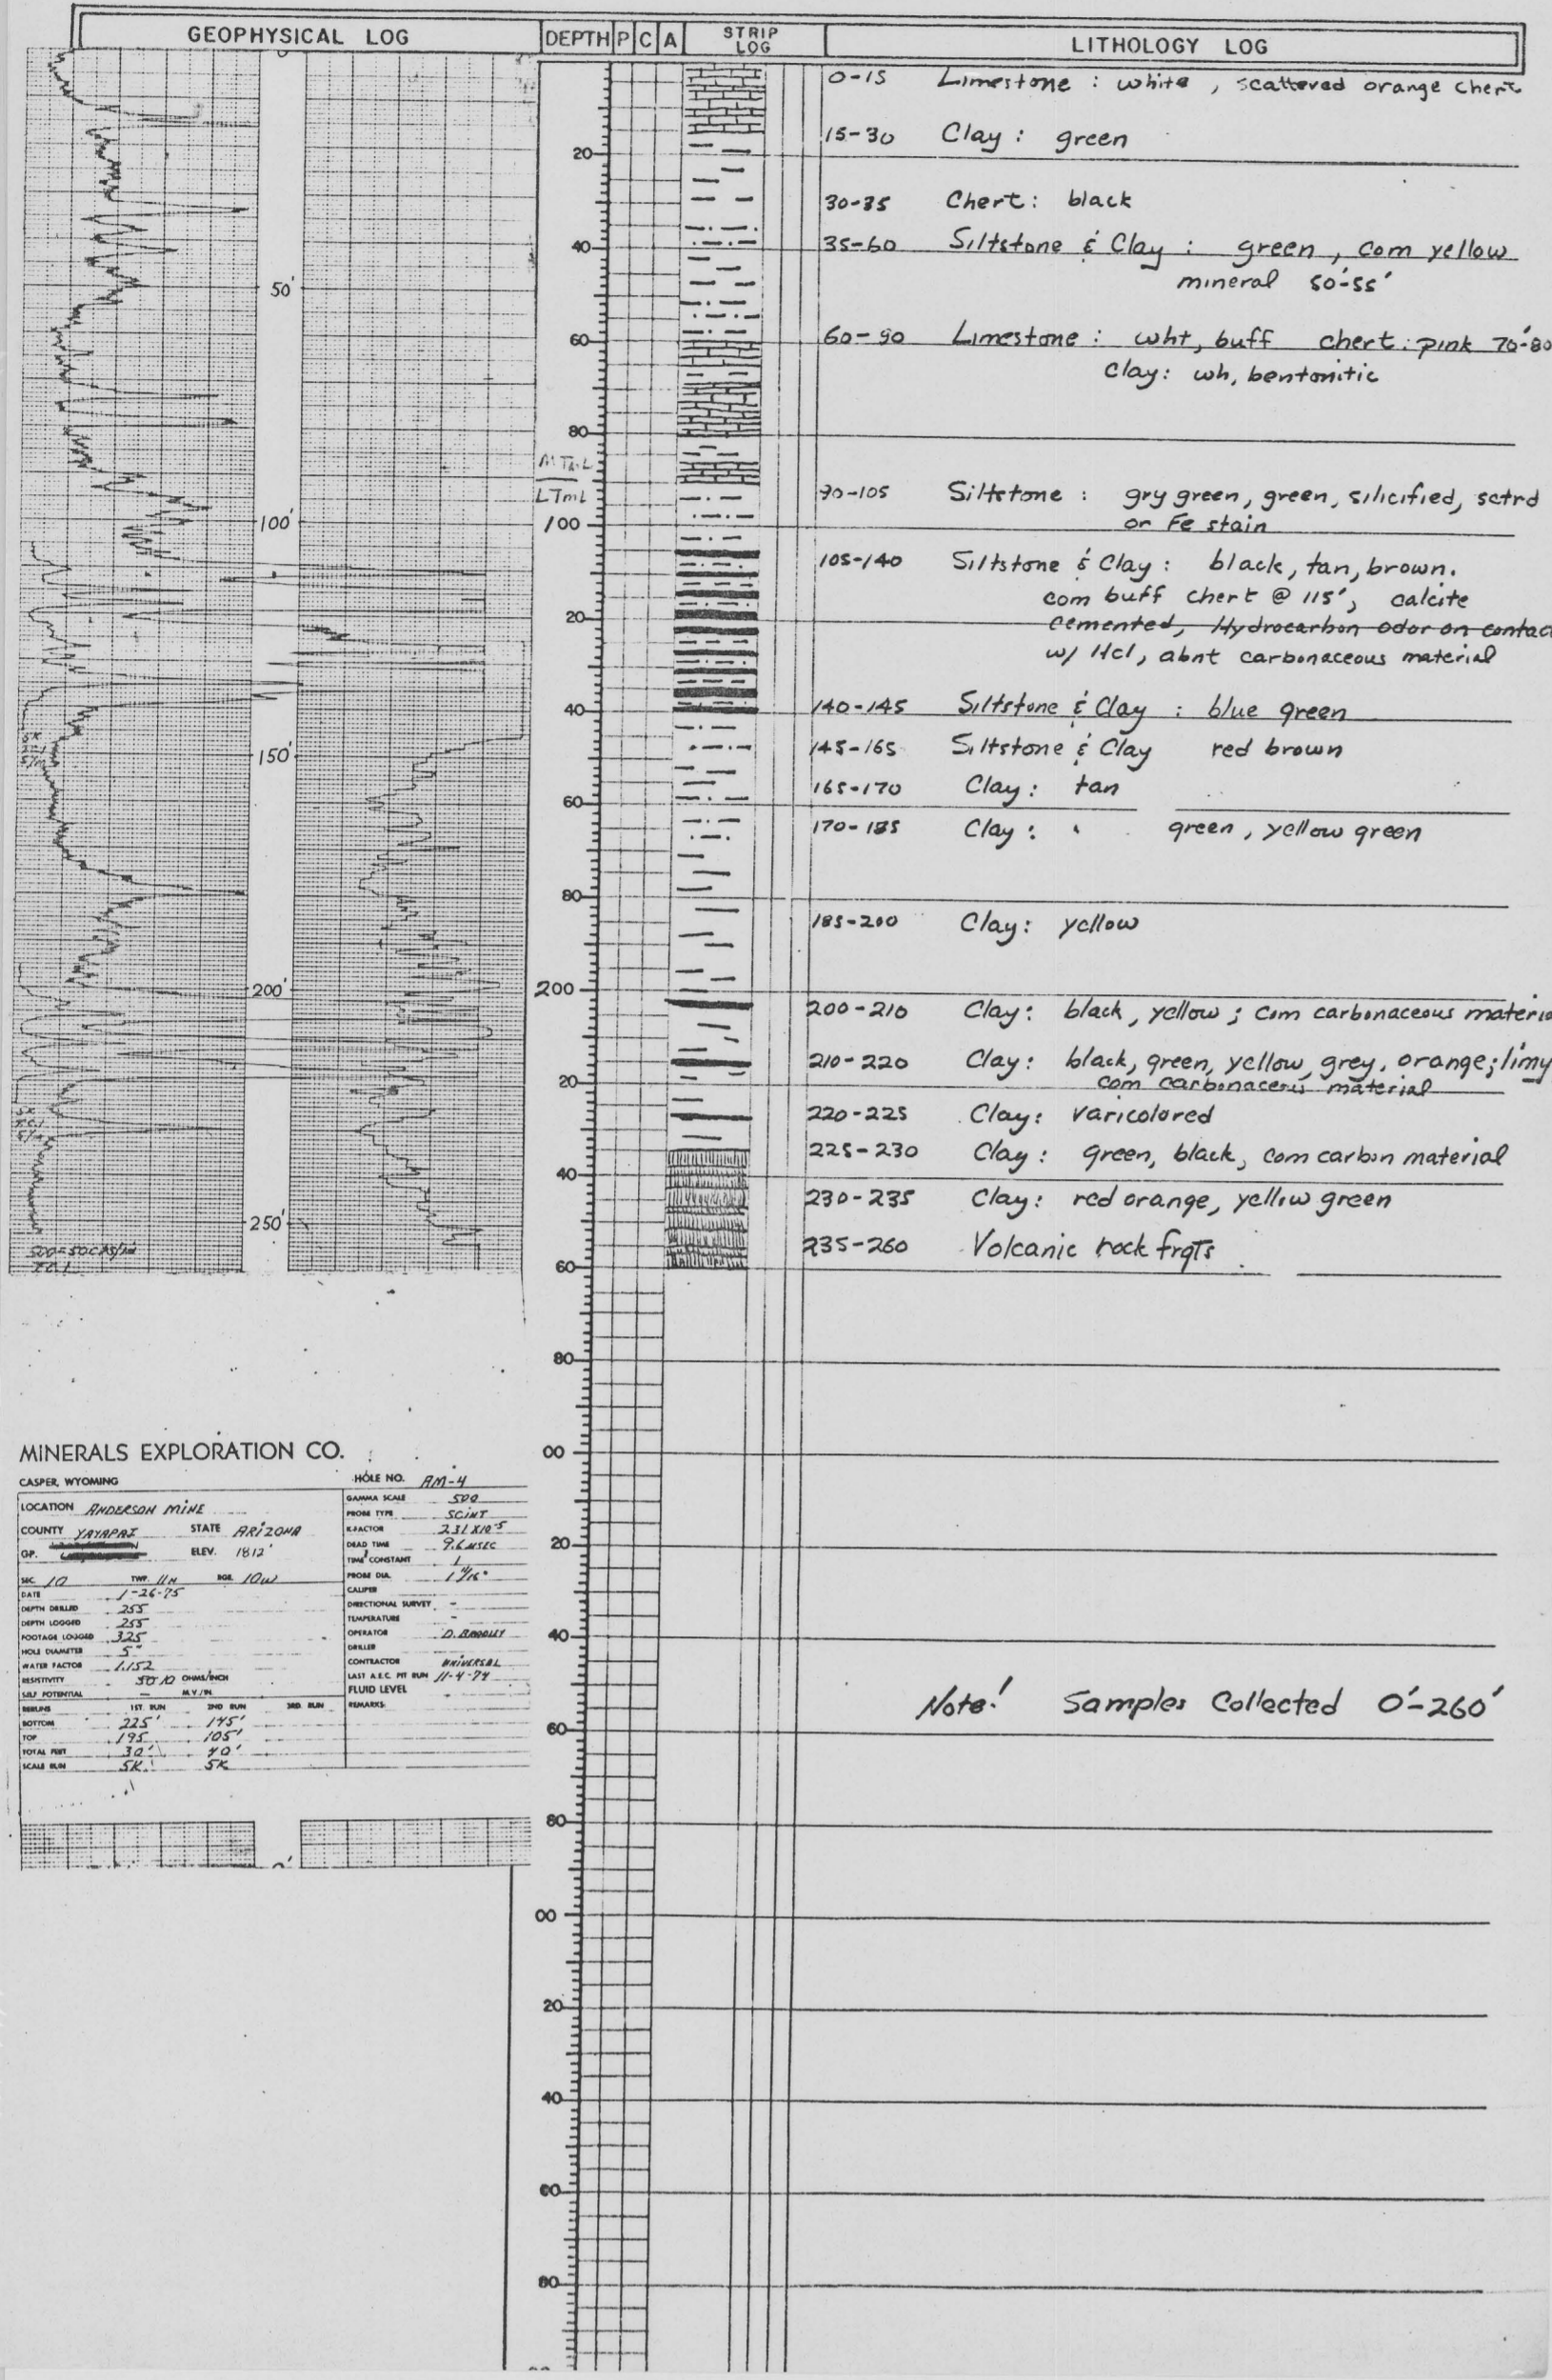 GEOPHYSICAL LOG
DEPTH P C A STRIP LOG LITHOLOGY LOG
0-15 Limestone : white , scattered orange chert
15-30 Clay : green
20
30-35 Chert : black
35-60 Siltstone & Clay : green , com yellow
40
mineral 50'-55'
50'
60-90 Limestone : wht, buff chert : pink 70'-80
60
Clay: wh, bentonitic
80
LTmL
90-105 Siltstone : gry green, green, silicified, sctrd
or Fe stain
100' 100
105-140 Siltstone & Clay : black, tan, brown.
com buff chert @ 115', calcite
20
cemented, Hydrocarbon odor on contac
w/ Hcl, abnt carbonaceous material
40
140-145 Siltstone & Clay : blue green
145-165 Siltstone & Clay red brown
150'
165-170 Clay : tan
60
170-185 Clay : green , yellow green
80
185-200 Clay : yellow
200' 200
200-210 Clay : black, yellow ; com carbonaceous materia
210-220 Clay : black, green, yellow, grey, orange; limy
20
com carbonaceous material
220-225 Clay: varicolored
225-230 Clay : green, black, com carbon material
40
230-235 Clay : red orange, yellow green
250'
235-260 Volcanic rock frgts
60
80
00
20
40
60
80
00
20
40
60
80
MINERALS EXPLORATION CO.
CASPER, WYOMING
HOLE NO. AM-4
LOCATION ANDERSON MINE
COUNTY YAVAPAI STATE ARIZONA
GP. ELEV. 1812'
SEC. 10 TWP. 11N RGE. 10W
DATE 1-26-75
DEPTH DRILLED 255
DEPTH LOGGED 255
FOOTAGE LOGGED 325
HOLE DIAMETER 5"
WATER FACTOR 1.152
RESISTIVITY 50 10 OHMS/INCH
SELF POTENTIAL — M.V./IN.
RERUNS 1ST. RUN 2ND RUN 3RD. RUN
BOTTOM 225' 145'
TOP 195 105'
TOTAL FEET 30' 40'
SCALE RUN 5K 5K
GAMMA SCALE 500
PROBE TYPE SCINT
K-FACTOR 2.31 X10-5
DEAD TIME 9.6 MSEC
TIME CONSTANT 1
PROBE DIA. 1 11/16"
CALIPER
DIRECTIONAL SURVEY -
TEMPERATURE -
OPERATOR D. BRADLEY
DRILLER
CONTRACTOR UNIVERSAL
LAST A.E.C. PIT RUN 11-4-74
FLUID LEVEL
REMARKS:
Note! Samples Collected 0'-260'